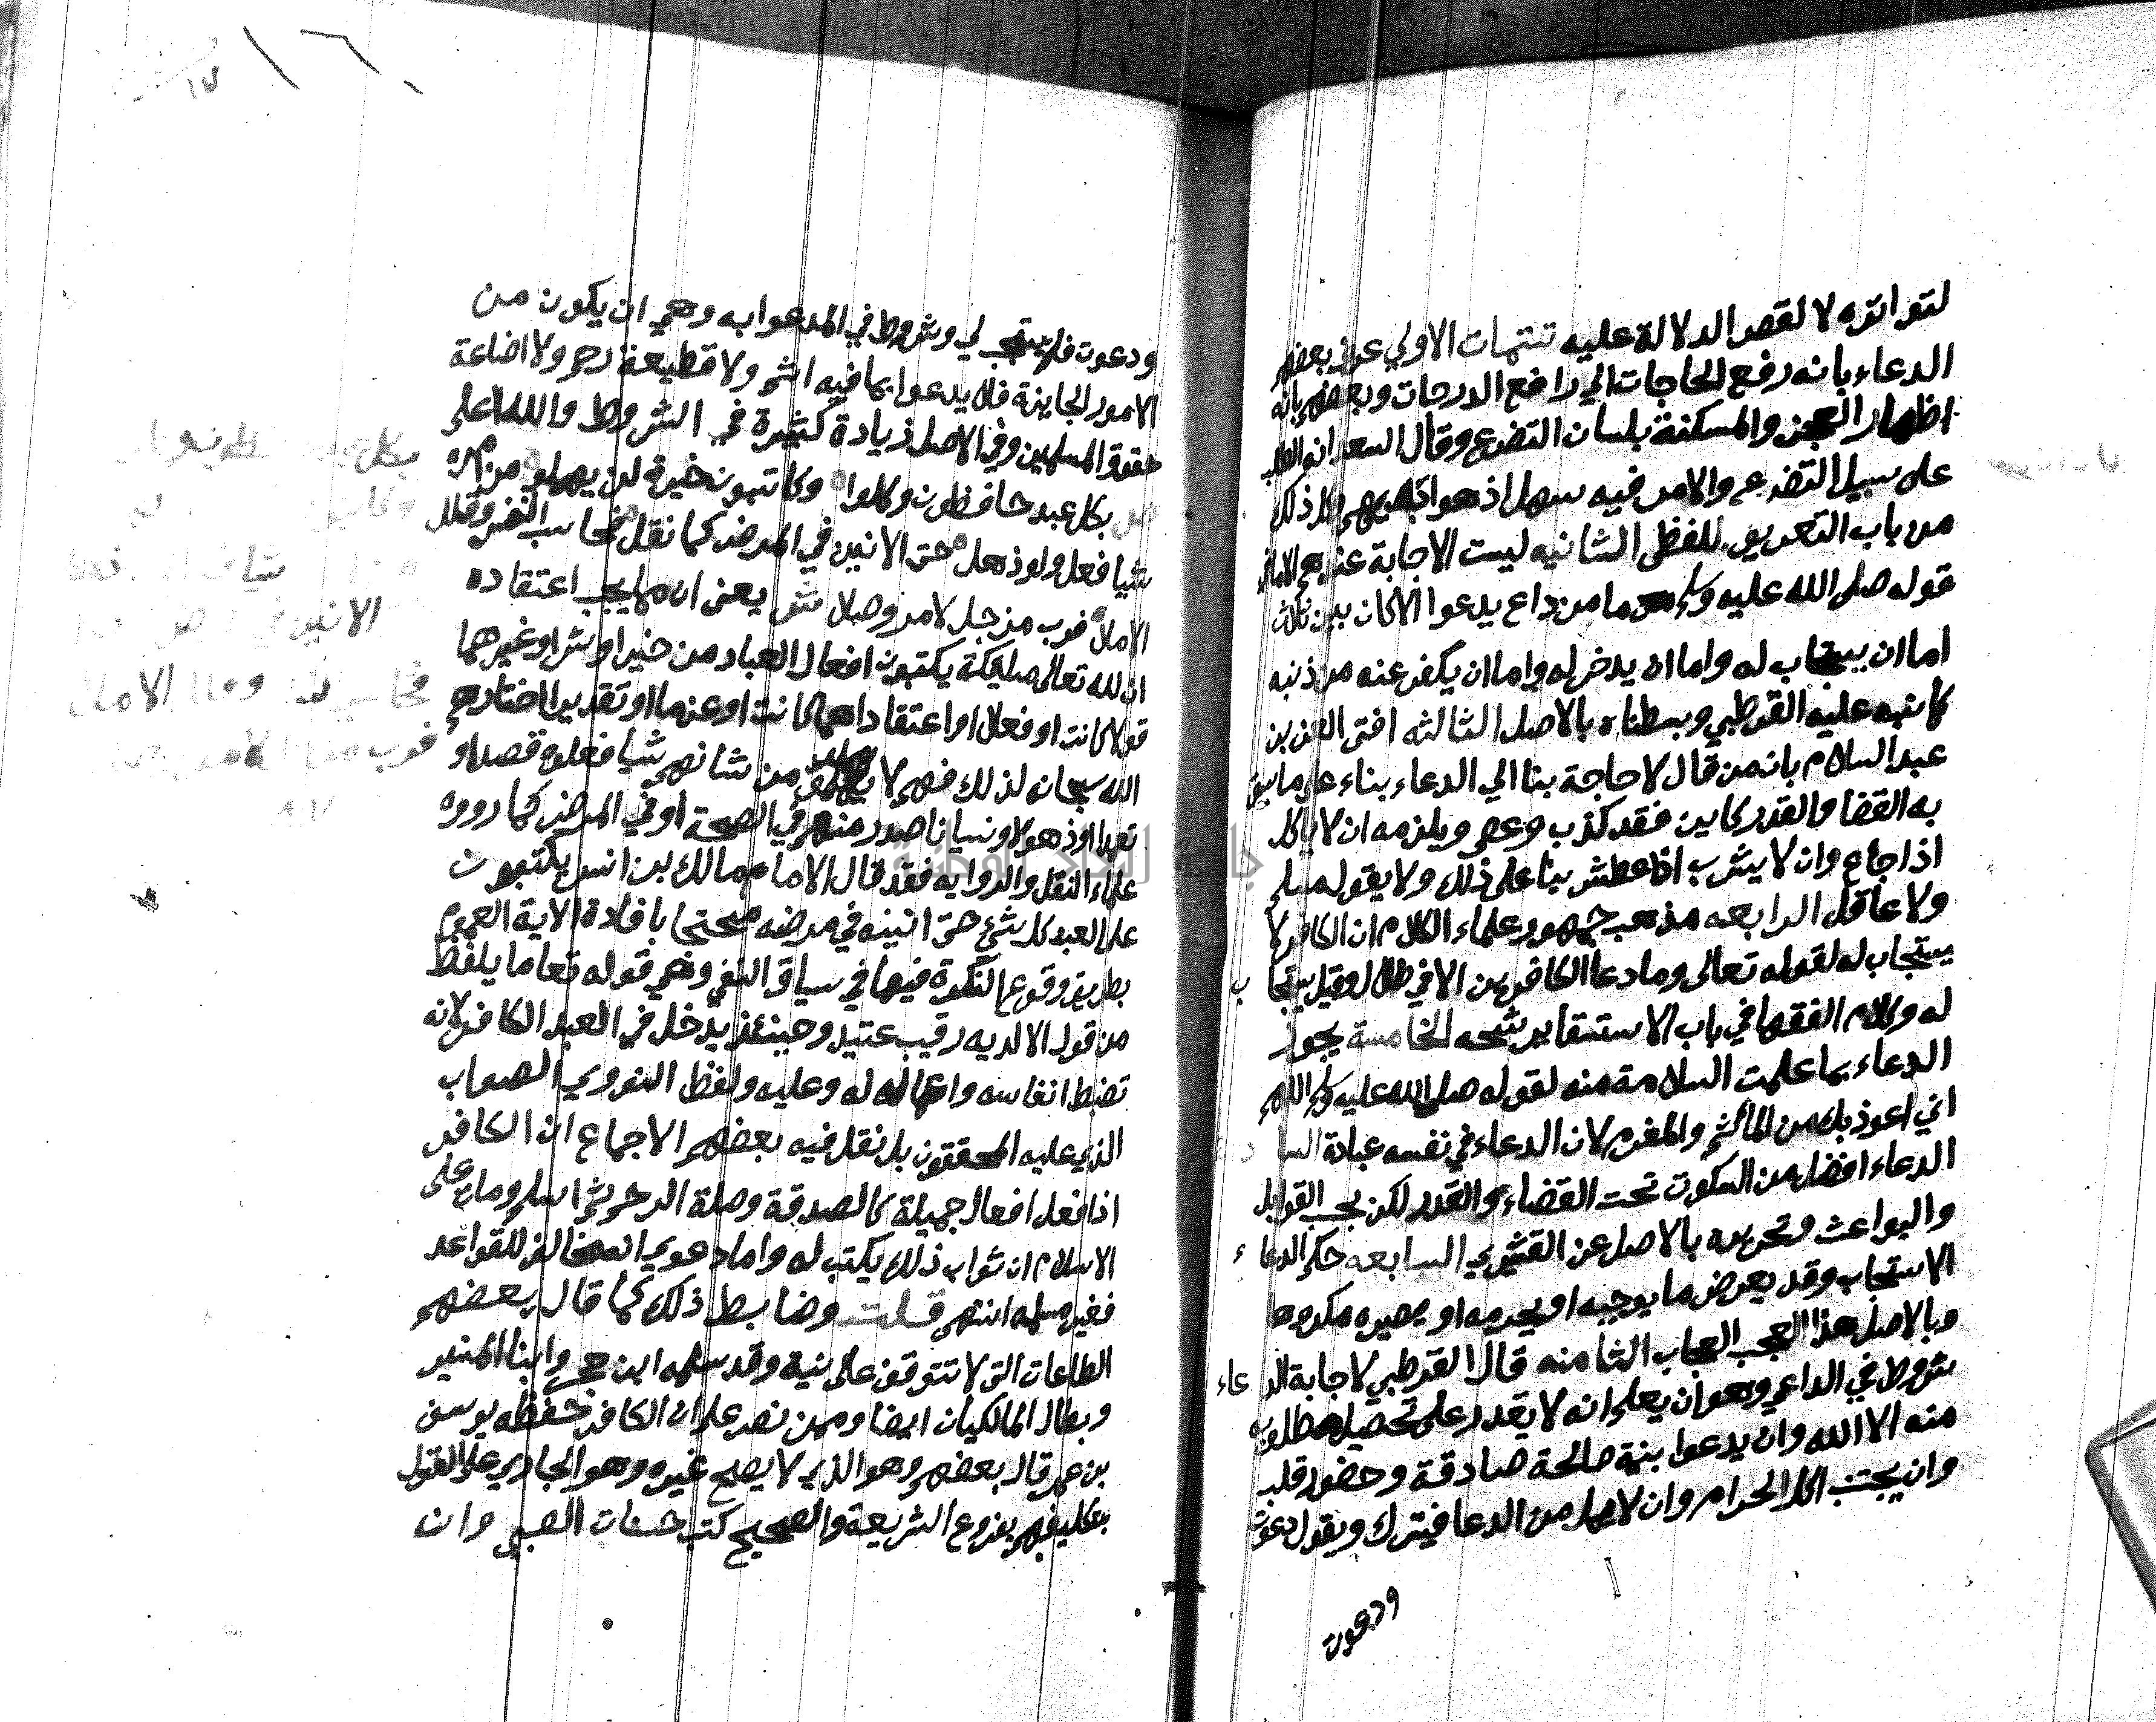 لتواتره لا لقصر الدلالة عليه تتمات الاولي عرف بعضهم
الدعاء بانه رفع الحاجات الي رافع الدرجات وبعضهم بانه
اظهار العجز والمسكنة بلسان التضرع وقال السعد انه الطلب
على سبيل التضرع والامر فيه سهل اذ هو بديهي وكل ذلك
من باب التعريف اللفظي الثانيه ليست الاجابة
قوله صلى الله عليه وسلم ما من داع يدعوا الا كان بين ثلاث
اما ان يستجاب له واما ان يدخر له واما ان يكفر عنه من ذنبه
كما نبه عليه القرطبي وبسطناه بالاصل الثالثه افتى العز بن
عبد السلام بانه من قال لا حاجة بنا الي الدعاء بناء على ما سبق
به القضا والقدر كاين فقد كذب وعصى ويلزمه ان لا ياكل
اذا جاع وان لا يشرب اذا عطش بنا على ذلك ولا يقوله مسلم
ولا عاقل الرابعه مذهب جمهور علماء الكلام ان الكافر لا
يستجاب له لقوله تعالى وما دعا الكافرين الا في ظلال وقيل يستجاب
له وكلام الفقها في باب الاستسقا يرشحه الخامسة يجوز
الدعاء بما علمت السلامة منه لقوله صلى الله عليه وسلم اللهم
اني اعوذ بك من المأثم والمغرم لان الدعاء في نفسه عبادة
الدعاء افضل من السكوت تحت القضاء والقدر لكن بحسب القوابل
والبواعث وتحريره بالاصل عن القشيري السابعه حكم الدعاء
الاستحباب وقد يعرض ما يوجبه او يحرمه او يصيره مكروها
وبالاصل هذا العجب العجاب الثامنه قال القرطبي لاجابة الدعاء
شروط في الداعي وهو ان يعلم انه لا يقدر على تحصيل مطلوبه
منه الا الله وان يدعوا بنية صالحة صادقة وحضور قلب
وان يجتنب اكل الحرام وان لا يمل من الدعا فيترك ويقول دعوت
ودعوت
ودعوت فلم يستجب لي وشروط في المدعوا به وهي ان يكون من
الامور الجايزة فلا يدعوا بما فيه اثم ولا قطيعة رحم ولا اضاعة
حقوق المسلمين وفي الاصل زيادة كثيرة في الشروط والله اعلم
بكل عبد حافظون وكلوا وكاتبون خيرة لن يهملوا من امره
شيا فعل ولو ذهل حتى الانين في المرض كما نقل فحاسب النفس وقلل
الاملا فرب من جد لامر وصلا ش يعنى ان مما يجب اعتقاده
ان لله تعالى مليكة يكتبون افعال العباد من خير او شر او غيرهما
قولا كانت او فعلا او اعتقادا هما كانت او عزما او تقديرا اختارهم
الله سبحانه لذلك فهم لا يهملون من شانهم شيا فعلوه قصدا و
تعمدا او ذهولا ونسيانا صدر منهم في الصحة او في المرض كما رووه
علماء النقل والروايه فقد قال الامام مالك بن انس يكتبون
على العبد كل شئ حتى انينه في مرضه محتجا بافادة الاية العموم
بطريق وقوع النكرة فيها في سياق النفي وهي قوله تعا ما يلفظ
من قول الا لديه رقيب عتيد وحينئذ يدخل في العبد الكافر لانه
تضبط انفاسه واعماله له وعليه ولفظ النووي الصواب
الذي عليه المحققون بل نقل فيه بعضهم الاجماع ان الكافر
اذا فعل افعال جميلة كالصدقة وصلة الرحم ثم اسلم ومات على
الاسلام ان ثواب ذلك يكتب له واما دعوي انه مخالف للقواعد
فغير مسلمه انتهى قلت وضابط ذلك كما قال بعضهم
الطاعات التي لا تتوقف على نية وقد سلمه ابن حجر وابنا المنير
وبطال المالكيان ايضا وممن نص على ان الكافر حفظه يوسف
بن عمر قال بعضهم وهو الذي لا يصح غيره وهو الجاري على القول
بتكليفهم بفروع الشريعة والصحيح كتب حسنات الصبي وان